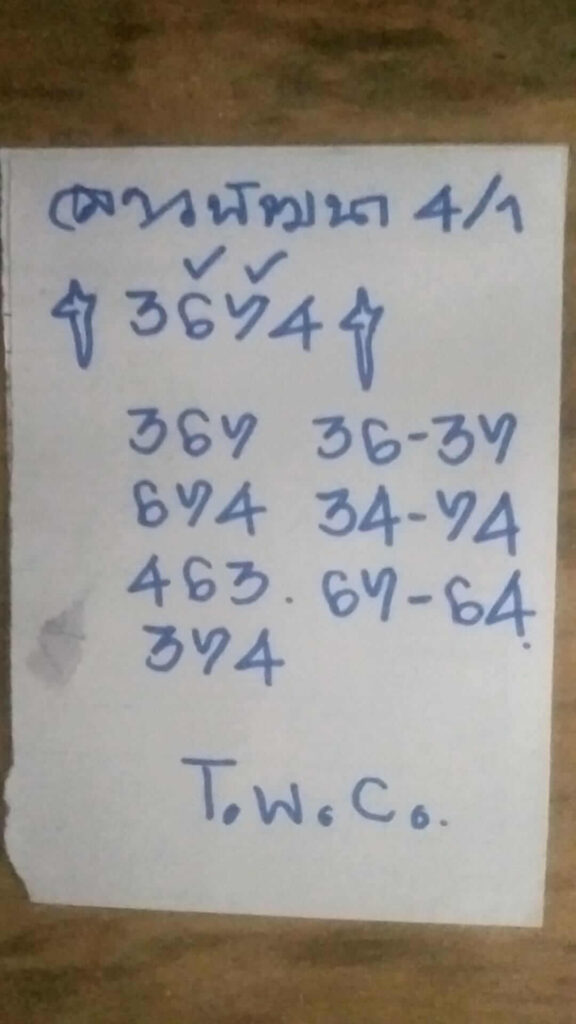 ลาวพัฒนา 4/1
✓ ✓
3674
367 36-37
674 34-74
463. 67-64.
374
T.W.C.